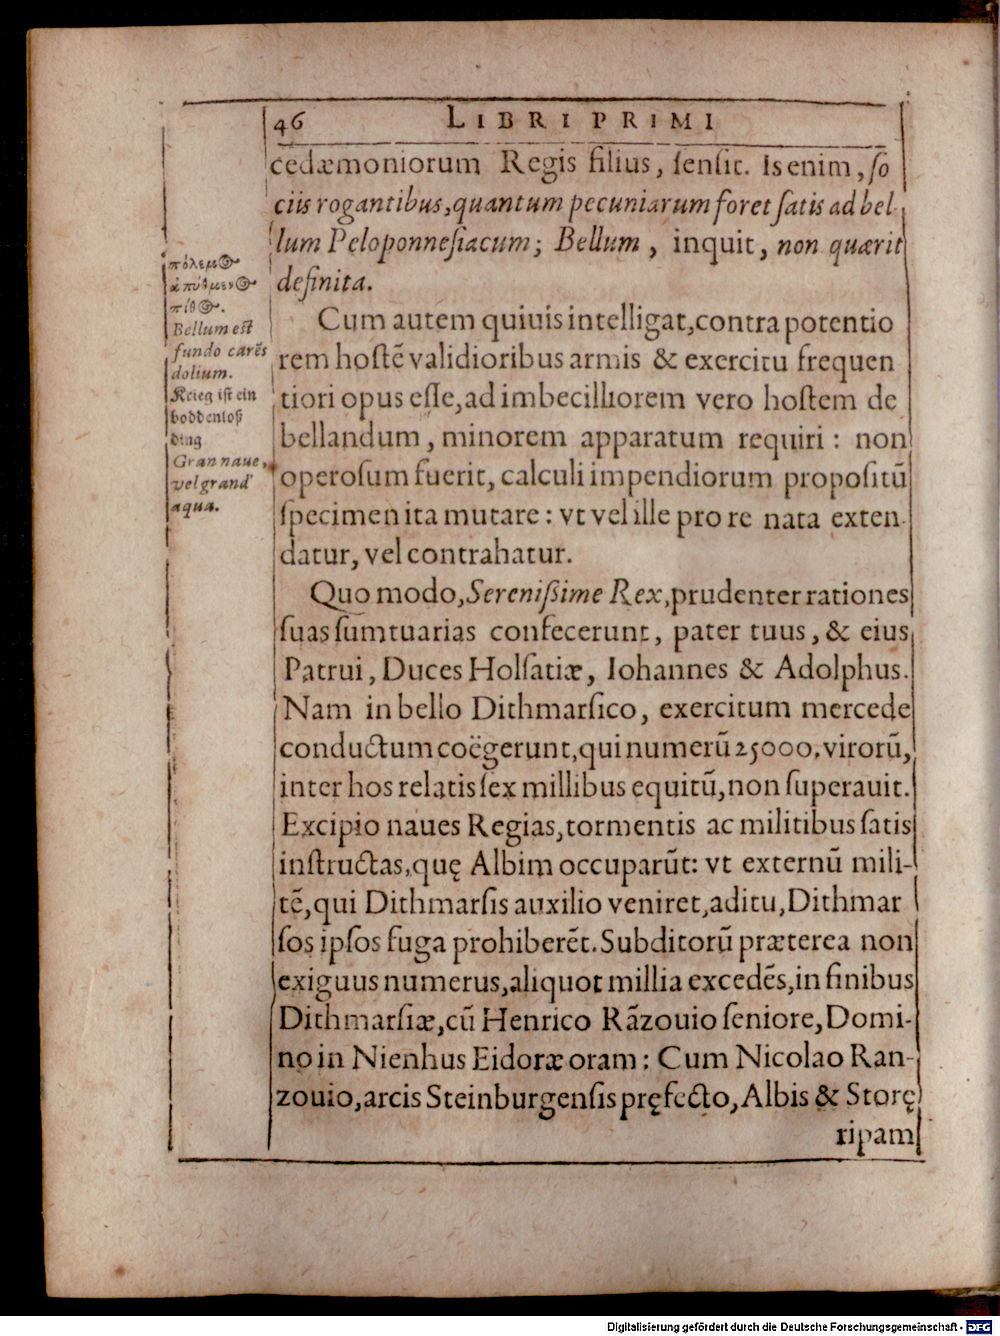 46 LIBRI PRIMI
cedæmoniorum Regis filius, ſenſit. Is enim, ſo
ciis rogantibus, quantum pecuniarum foret ſatis ad bel
lum Peloponneſiacum; Bellum, inquit, non quærit
definita.
Cum autem quiuis intelligat, contra potentio
rem hoſtē validioribus armis & exercitu frequen
tiori opus eſſe, ad imbecilliorem vero hoſtem de
bellandum, minorem apparatum requiri: non
operoſum fuerit, calculi impendiorum propoſitū
ſpecimen ita mutare: vt vel ille pro re nata exten-
datur, vel contrahatur.
Quo modo, Sereniſsime Rex, prudenter rationes
ſuas ſumtuarias confecerunt, pater tuus, & eius
Patrui, Duces Holſatiæ, Iohannes & Adolphus.
Nam in bello Dithmarſico, exercitum mercede
conductum coëgerunt, qui numerū 25000. virorū,
inter hos relatis ſex millibus equitū, non ſuperauit.
Excipio naues Regias, tormentis ac militibus ſatis
inſtructas, quę Albim occuparūt: vt externū mili-
tē, qui Dithmarſis auxilio veniret, aditu, Dithmar
ſos ipſos fuga prohiberēt. Subditorū præterea non
exiguus numerus, aliquot millia excedēs, in finibus
Dithmarſiæ, cū Henrico Rāzouio ſeniore, Domi-
no in Nienhus Eidoræ oram: Cum Nicolao Ran-
zouio, arcis Steinburgenſis pręfecto, Albis & Storę
ripam
πόλεμος
ἀπύθμενος
πίθος.
Bellum eſt
fundo carēs
dolium.
Krieg iſt ein
boddenloß
ding
Gran naue,
vel grand'
aqua.
Digitalisierung gefördert durch die Deutsche Forschungsgemeinschaft - DFG